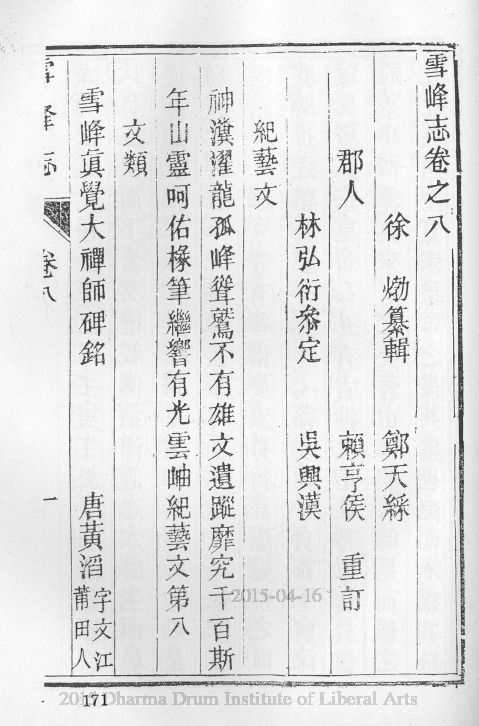 雪峰志卷之八
徐 𤊹纂輯 鄭天綵
郡人 賴亨侯 重訂
林弘衍叅定 吳興漢
紀藝文
神瀵濯龍孤峰聳鷲不有雄文遺蹤靡究千百斯
年山靈呵佑椽筆繼響有光雲岫紀藝文第八
文類
雪峰真覺大禪師碑銘 唐黃滔 字文江 莆田人
雪峰志 卷八 一
2015-04-16
171
Dharma Drum Institute of Liberal Arts